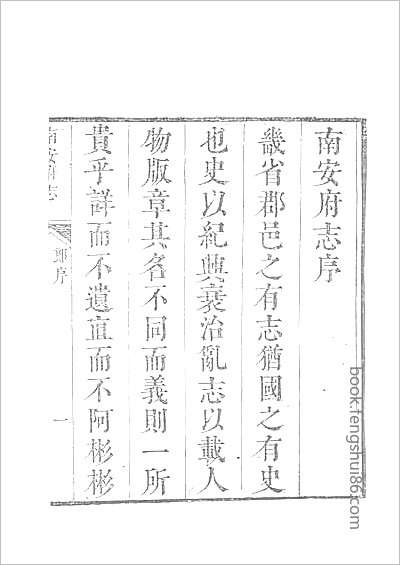 南安府志序
畿省郡邑之有志猶國之有史
也史以紀興衰治亂志以載人
物版章其名不同而義則一所
貴乎詳而不遺直而不阿彬彬
南安府志
郎序
一
book.fengshui86.com